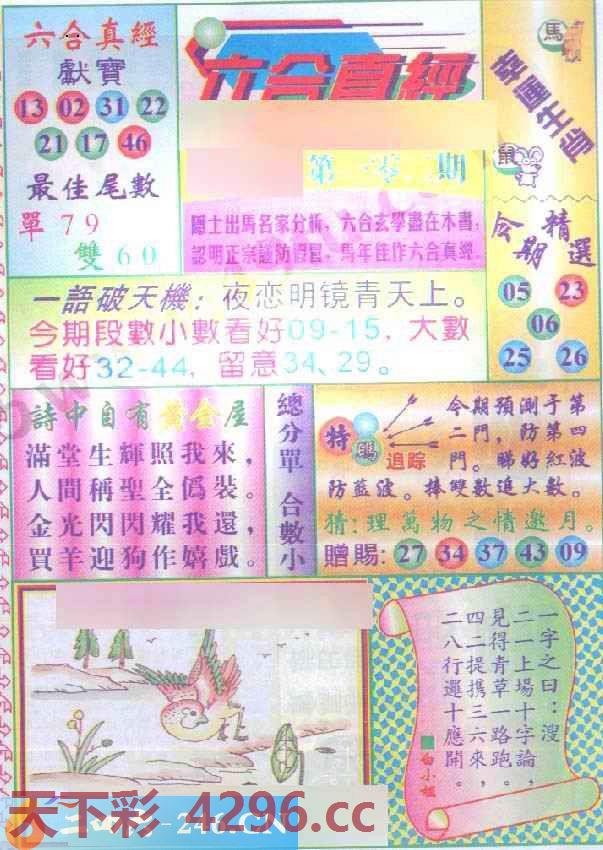 六合真經
獻寶
13 02 31 22
21 17 46
最佳尾數
單 7 9
雙 6 0
六合真經
第一零二期
隱士出馬名家分析，六合玄學盡在本書，
認明正宗謹防假冒，馬年佳作六合真經。
馬
幸運生肖
鼠
今期精選
05 23
06
25 26
一語破天機：夜恋明镜青天上。
今期段數小數看好09-15，大數
看好32-44，留意34、29。
詩中自有黃金屋
滿堂生輝照我來，
人間稱聖全僞裝。
金光閃閃耀我還，
買羊迎狗作嬉戲。
總分單 合數小
特碼
追踪
今期預測于第
二門，防第四
門。睇好紅波
防藍波。捧雙數進大數。
猜：理萬物之情邀月。
贈賜：27 34 37 43 09
一字之曰：溲
二一上場十字論，
見得青草一路跑。
四二提携三六來，
二八行運十應開。
白小姐
天下彩 4296.cc
-246.CN